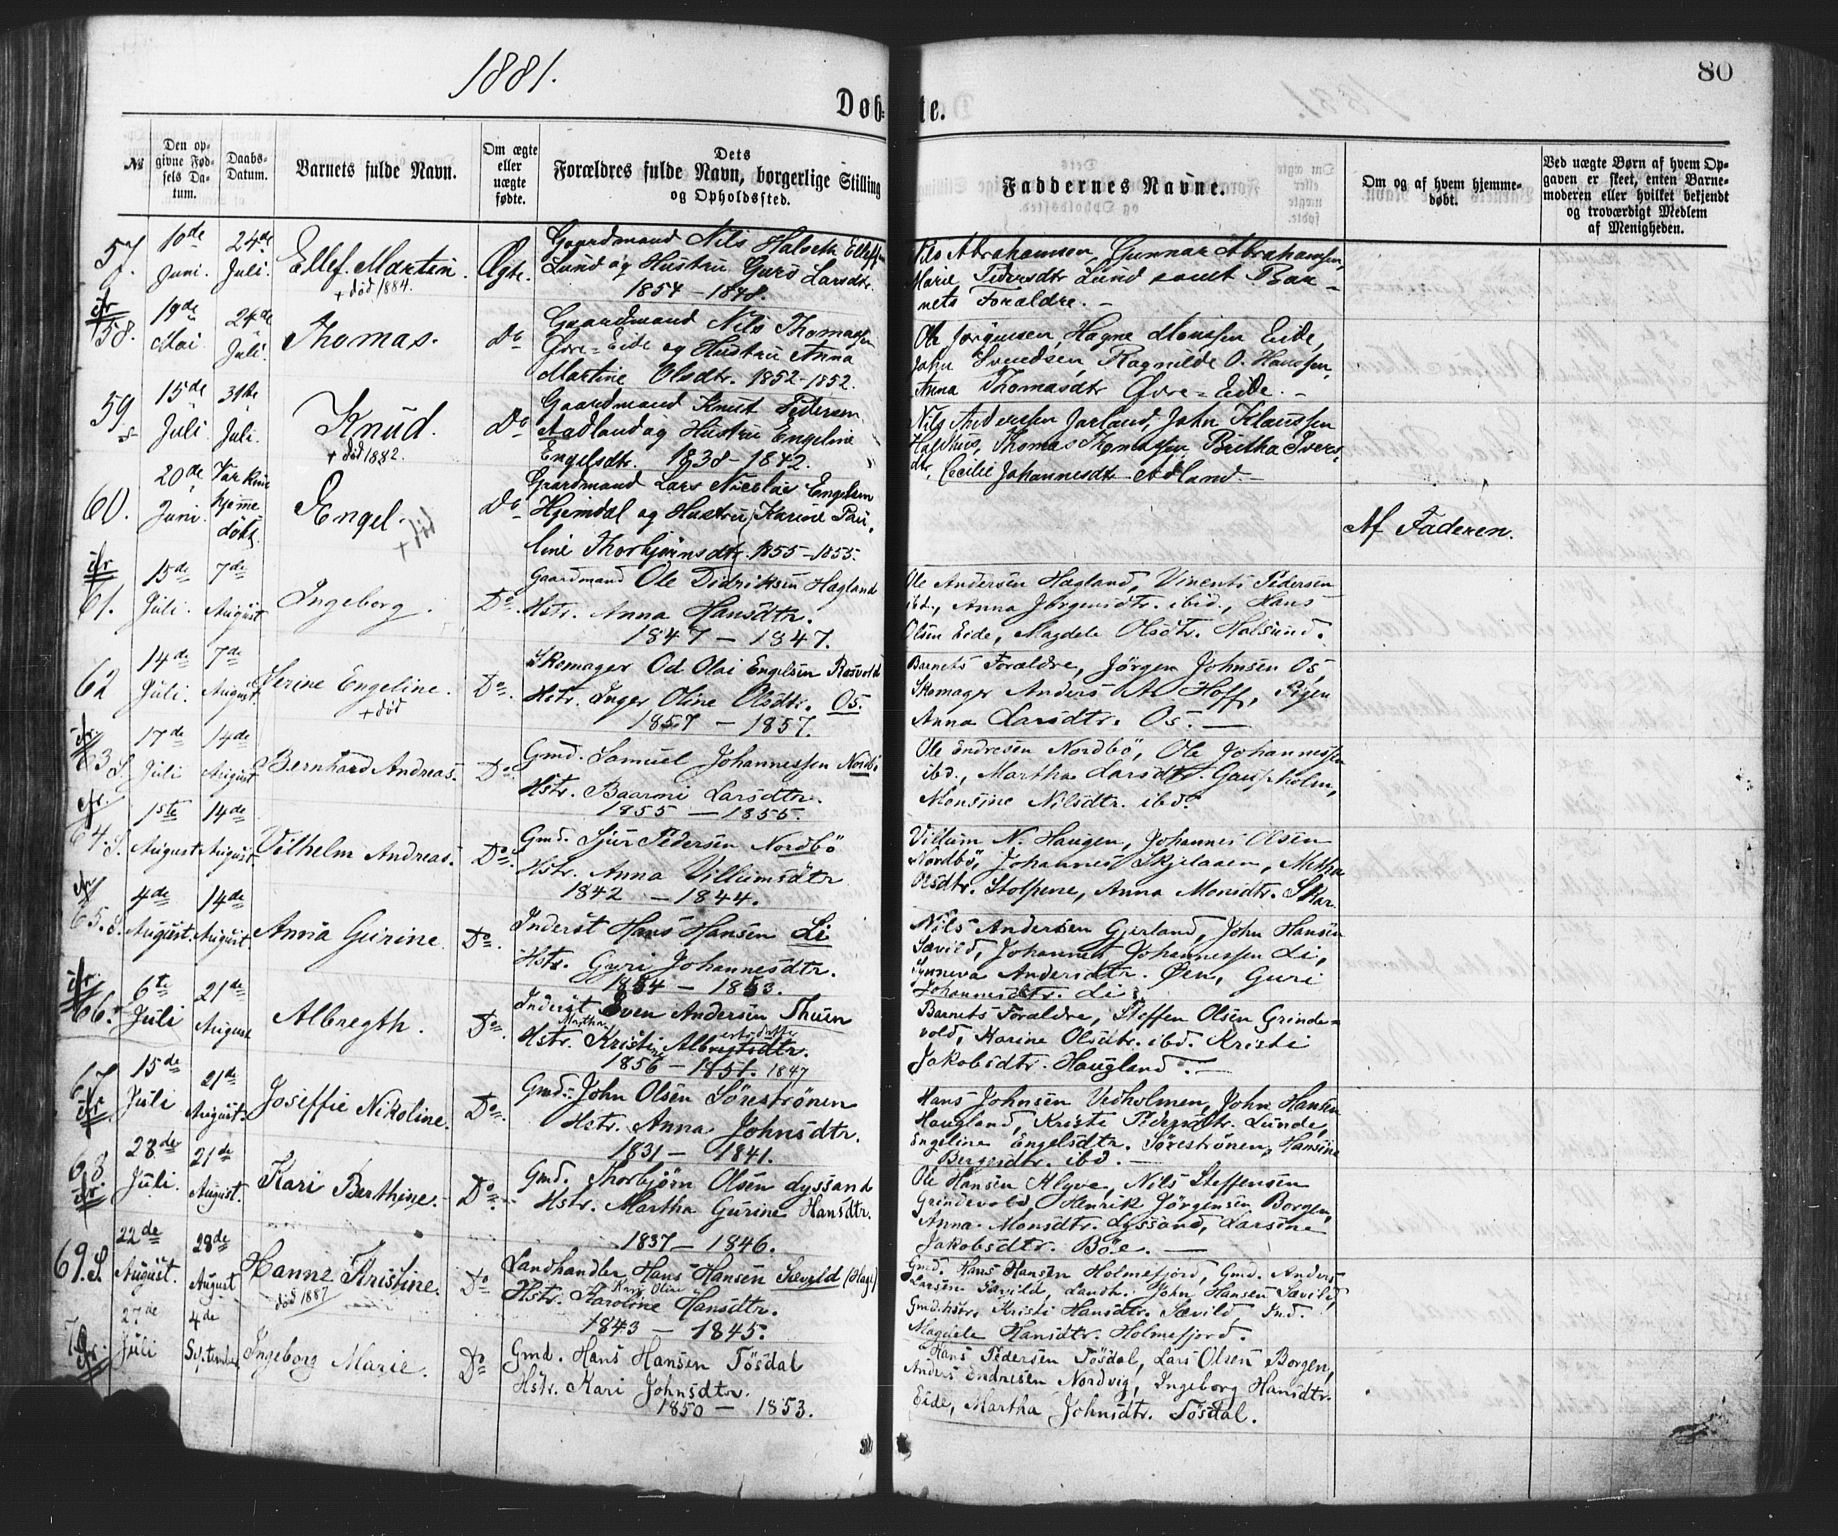 1881.
80
Døb-
te.
№
Den op-
givne Fød-
sels Da-
tum.
Daabs-
Datum.
Barnets fulde Navn.
Om ægte
eller
uægte
fødte.
Dets
Forældres fulde Navn, borgerlige Stilling
og Opholdssted.
Faddernes Navne.
Om og af hvem hjemme-
døbt.
Ved uægte Børn af hvem Op-
gaven er skeet, enten Barne-
moderen eller hvilket bekjendt
og troværdigt Medlem
af Menigheden.
57
10de
Juni.
24de
Juli.
Ellef Martin.
+ død 1884.
Ægte.
Gaardmand Nils Halvek Elleffsen
Lund og Hustru Guro Larsdtr.
1854 – 1848.
Nils Abrahamsen, Gunnar Abrahamsen,
Marie Pedersdtr Lund samt Bar-
nets Forældre. –
58.
19de
Mai
24de
Juli.
Thomas.
Do
Gaardmand Nils Thomassen
Øvre-Eide og Hustru Anna
Martine Olsdtr. 1852–1852.
Ole Jørgensen, Hagne Monssen Eide,
John Svendsen, Ragnilde O. Hanssen,
Anna Thomasdtr Øvre-Eide. –
59.
15de
Juli.
31te
Juli.
Knud.
+ død 1882.
Do
Gaardmand Knut Pedersen
Aadland og Hustru Engeline
Engelsdtr. 1838–1842.
Nils Anderssen Jarland, John Klaussen
Thomas Knudssen, Birtha Ivers-
dtr, Cecilie Johannesdtr Adland. –
60.
20de
Juni.
Var kun
hjemme-
døbt.
Engel.
+ død
Do
Gaardmand Lars Nicolai Engelsen
Hjemdal og Hustru Karine Pau-
line Thorbjørnsdtr. 1855–1855.
Af Faderen.
61.
15de
Juli.
7de
August
Ingeborg.
Do.
Gaardmand Ole Didriksen Hagland
Hstr. Anna Hansdtr.
1847 – 1847.
Ole Andersen Hagland, Vincents Pedersen
ibd., Anna Jørgensdtr. ibid., Hans
Olsen Eide, Magdele Olsdtr. Holsund.
62
14de
Juli.
7de
August.
Serine Engeline.
+ død
Do.
Skomager Od Olai Engelsen Røsvold
Hstr. Inger Oline Olsdtr. Os.
1857 – 1857.
Barnets Forældre, Jørgen Johnsen Os,
Skomager Anders A. Hoff, Pigen
Anna Larsdtr. Os. –
63 S.
17de
Juli
14de
August
Bernhard Andreas.
Do
Gmd. Samuel Johannessen Nordbø
Hstr. Baarni Larsdtr.
1855 – 1855.
Ole Endresen Nordbø, Ole Johannessen
ibd., Martha Larsdtr. Gaupholm,
Monsine Nilsdtr. ibd.
64. S.
1ste
August
14de
August.
Vilhelm Andreas.
Do.
Gmd. Sjur Pedersen Nordbö
Hstr. Anna Villumsdtr
1842 – 1844.
Villum N. Haugen, Johannes Olsen
Nordbö, Johannes Skjelaaen,
Olsdtr. Stolpene, Anna Monsdtr. Skar.
65. S.
4de
August.
14de
August
Anna Gurine.
Do.
Inderst Hans Hansen Li
Hstr. Guri Johannesdtr.
1854 – 1853.
Nils Andersen Gjerland, John Hansen
Sævild, Johannes Johannessen Li,
Synneva Andersdtr. Øen, Guri
Johannesdtr. Li.
66.
6te
Juli
21de
August
Albregth.
Do.
Inderst Sven Andersen Thuen
Martha
Hstr. Kristine Albregtsdtr.
1856 – 1851. 1847
Barnets Forældre, Steffen Olsen Grinde-
vold, Karine Olsdtr. ibd. Kristi
Jakobsdtr. Haugland. –
67
15de
Juli
21de
August.
Joseffie Nikoline.
Do.
Gmd. John Olsen Sörestrønen
Hstr. Anna Johnsdtr.
1831 – 1841.
Hans Johnsen Vedholmen, John Hansen
Haugland, Kriste Pedersdtr. Lunde,
Engeline Engelsdtr. Sørestrønen, Hansine
Bergesdtr. ibd. –
68.
28de
Juli.
21de
August.
Kari Berthine.
Do.
Gmd. Thorbjörn Olsen Lyssand
Hstr. Martha Gurine Hansdtr.
1837 – 1846.
Ole Hansen Alyve, Nils Steffensen
Grindevold, Henrik Jørgensen Borgen,
Anna Monsdtr. Lyssand, Larsine
Jakobsdtr. Böe. –
69. S.
22de
August.
28de
August
Hanne Kristine.
død 1887
Do.
Landhandler Hans Hansen Sævild (Hage)
Kari Oline
Hstr. Karoline Hansdtr.
1843 – 1845.
Gmd. Hans Hansen Holmefjord, Gmd. Anders
Larsen Sævild, Landh. John Hansen Sævild,
Gmdshstr. Kristi Hansdtr. Sævild Ind.
Magdele Hansdtr. Holmefjord.
70.
27de
Juli
4de
September
Ingeborg Marie.
Do.
Gmd. Hans Hansen Tösdal
Hstr. Kari Johnsdtr.
1850 – 1853.
Hans Pedersen Tösdal, Lars Olsen Borgen,
Anders Endresen Nordvig, Ingeborg Hansdtr.
Eide, Martha Johnsdtr. Tösdal.